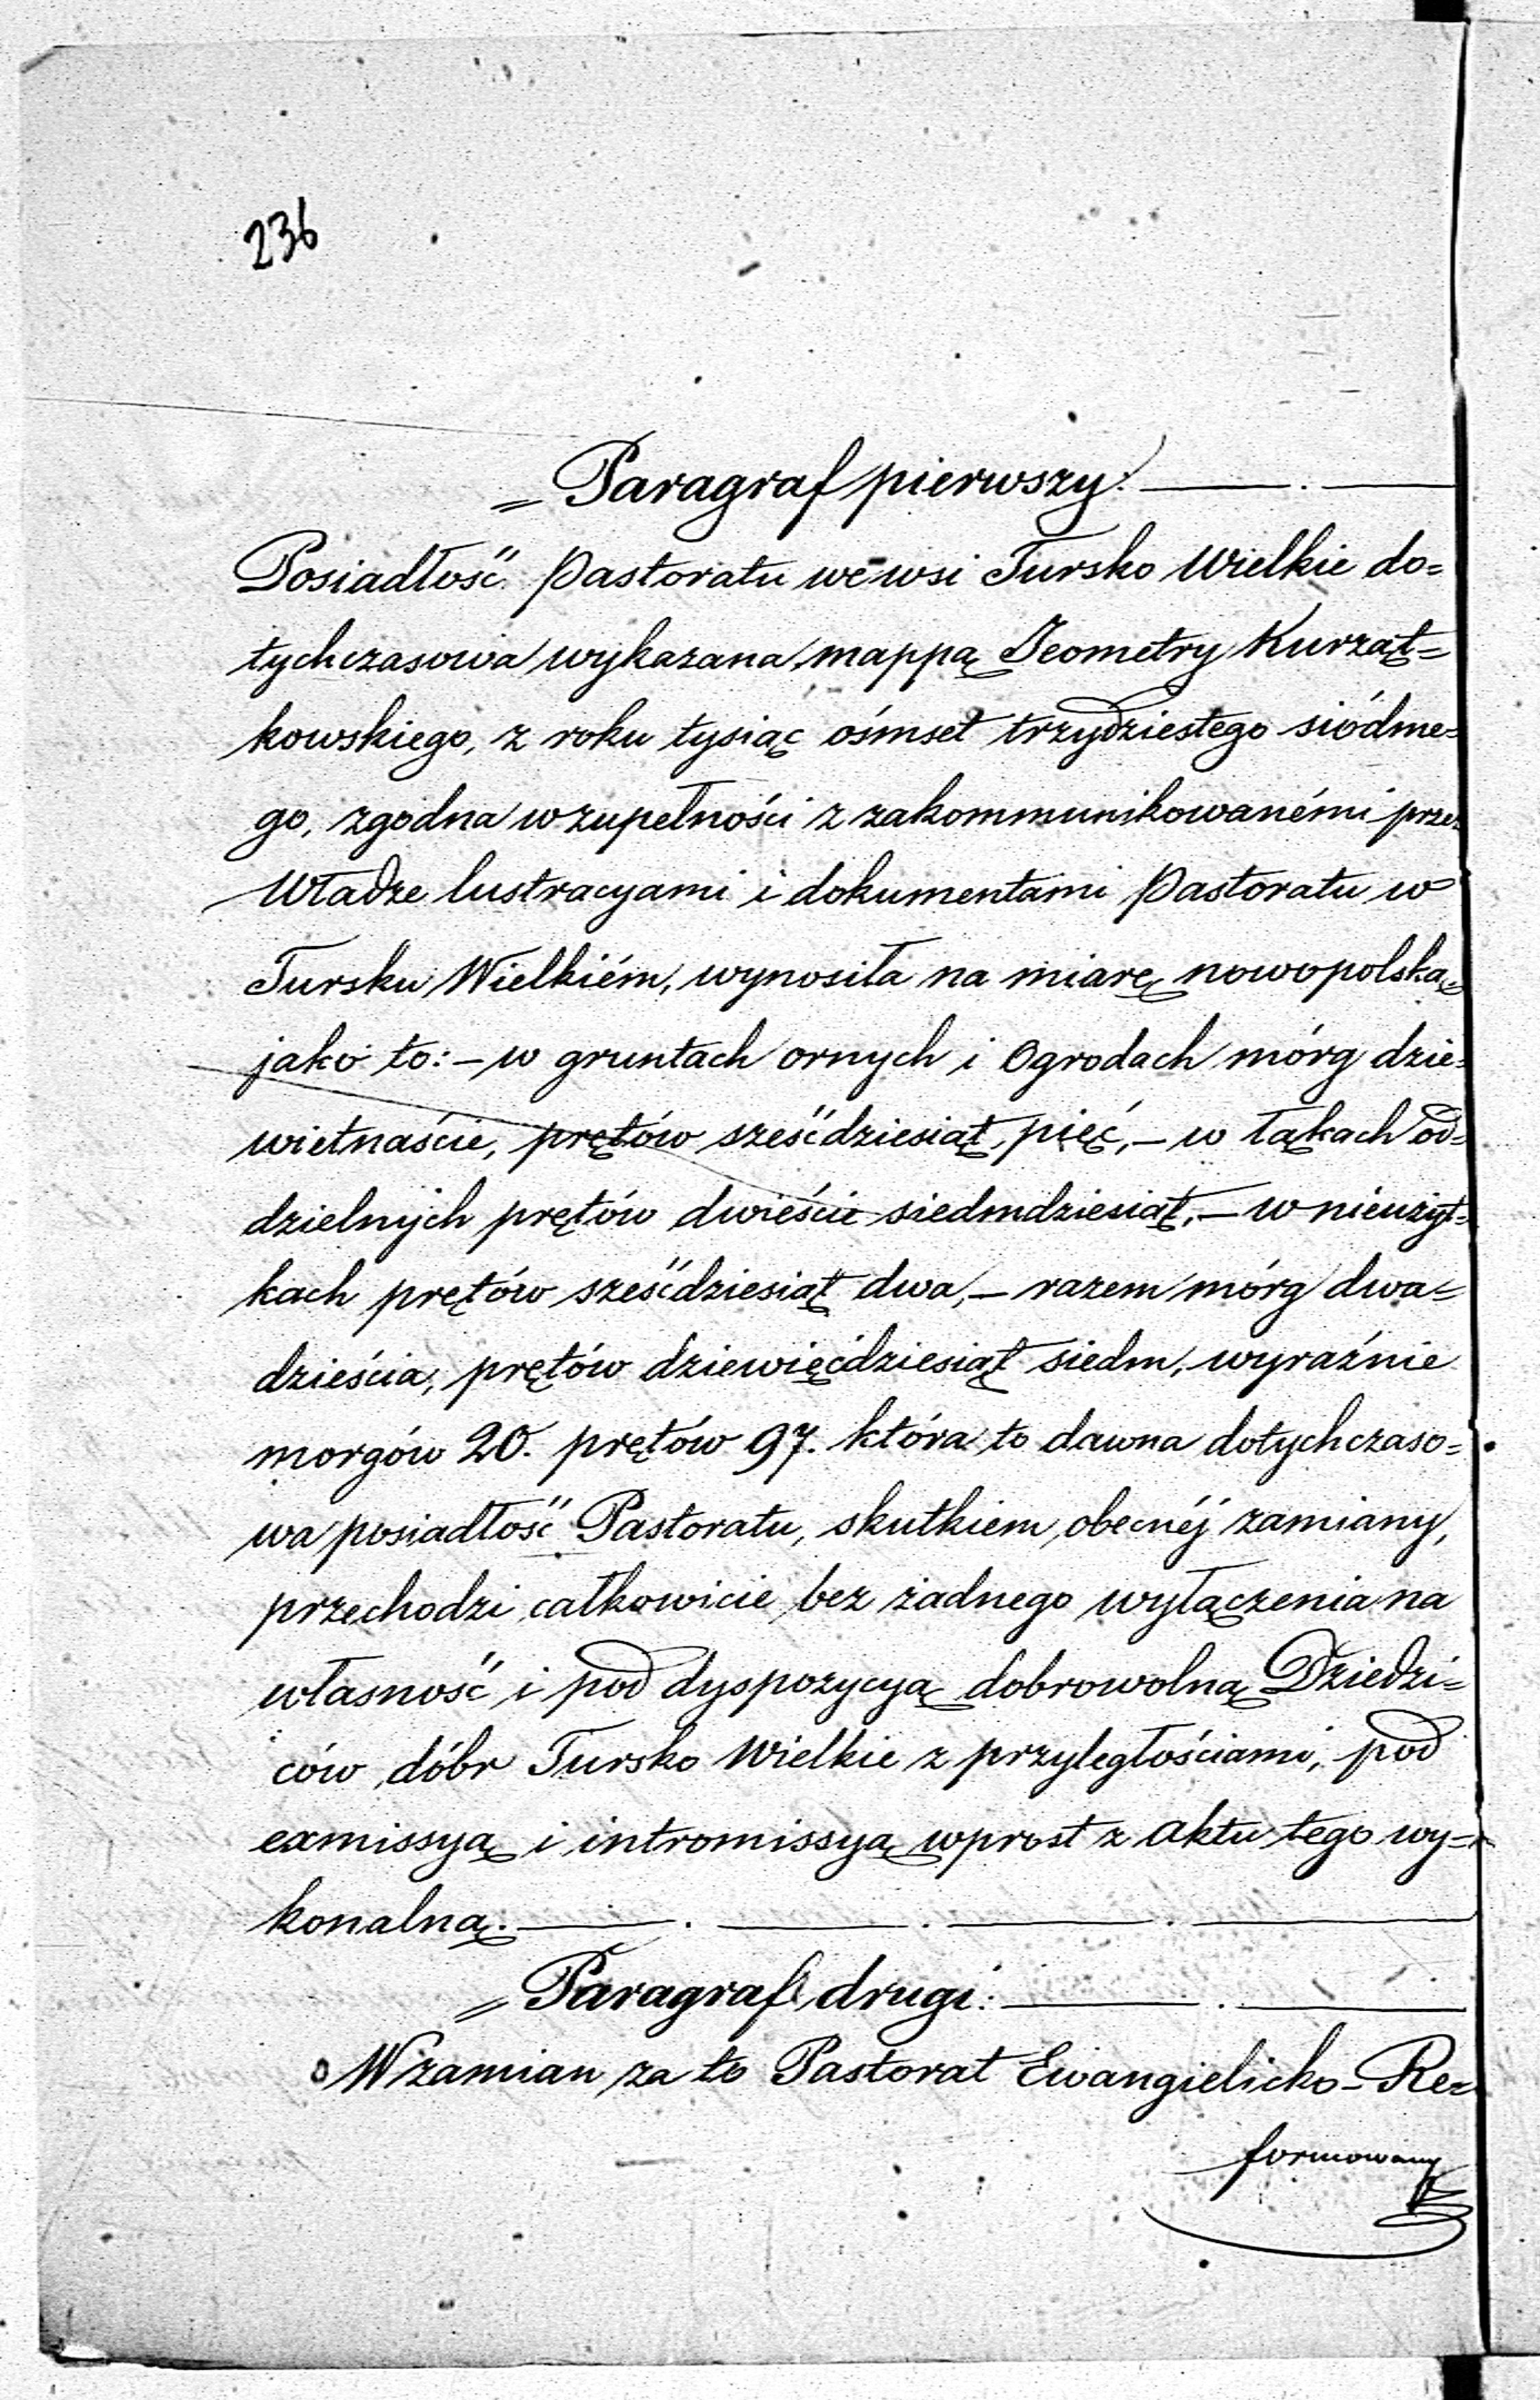 236
„Paragraf pierwszy: — . —
Posiadłość Pastoratu we wsi Tursko Wielkie do=
tychczasowa wykazana mappą Jeometry Kurząt=
kowskiego, z roku tysiąc ośmset trzydziestego siódme=
go, zgodna w zupełności z zakommunikowanémi prze=
Władze lustracyami i dokumentami Pastoratu w
Tursku Wielkiém, wynosiła na miarę nowopolską,
jako to: – w gruntach ornych i Ogrodach mórg dzie=
wietnaście, prętów sześćdziesiąt pięć, – w łąkach od=
dzielnych prętów dwieście siedmdziesiąt, – w nieużyt=
kach prętów sześćdziesiąt dwa, – razem mórg dwa=
dzieścia, prętów dziewięćdziesiąt siedm, wyraźnie
morgów 20. prętów 97. która to dawna dotychczaso=
wa posiadłość Pastoratu, skutkiem obecnéj zamiany,
przechodzi całkowicie bez żadnego wyłączenia na
własność i pod dyspozycyą dobrowolną Dziedzi=
ców dóbr Tursko Wielkie z przyległościami, pod
exmissyą i intromissyą wprost z aktu tego wy=
konalną. — . — . — . —
„Paragraf drugi: — . —
W zamian za to Pastorat Ewangielicko-Re=
formowany